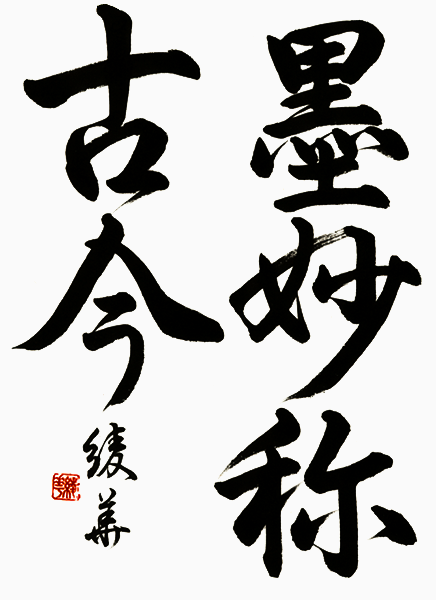 墨妙称
古今
綾華